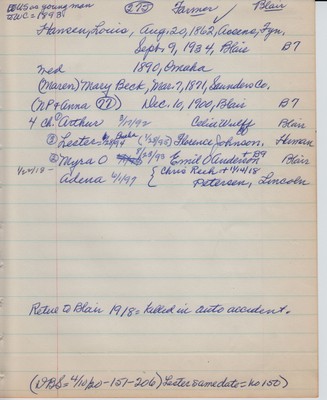 US as young man (272) Farmer Blair
WC = 1893
Hansen, Louis, Aug. 20, 1862, Assens, Fyn.
Sept. 9, 1934, Blair B7
med 1890, Omaha
(Maren) Mary Beck, Mar. 7, 1871, Saunders Co.
(NP + Anna (77)) Dec. 10, 1900, Blair B7
4 Ch: Arthur Celia Wulff Blair
③ Lester (1/25/95) Florence Johnson, Herman
② Myra O 8/23/93 Emil O Anderson 89 Blair
Adena 4/1/99 { Chris Reeh + 11/14/18
Petersen, Lincoln
Retue to Blair 1918 = killed in auto accident.
(DBS = 4/10/20 - 157 - 206) Lester same date = no 150)